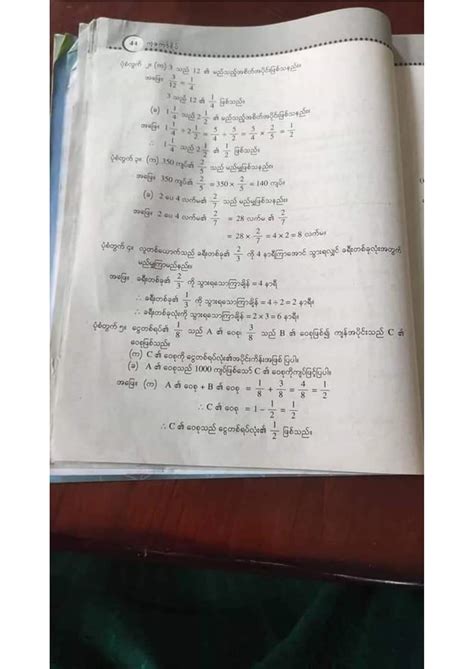 44
ပုံစံတွက် ၂။ (က) 3 သည် 12 ၏ မည်သည့်အစိတ်အပိုင်းဖြစ်သနည်း။
အဖြေ။ 3/12 = 1/4
3 သည် 12 ၏ 1/4 ဖြစ်သည်။
(ခ) 1 1/4 သည် 2 1/2 ၏ မည်သည့်အစိတ်အပိုင်းဖြစ်သနည်း။
အဖြေ။ 1 1/4 ÷ 2 1/2 = 5/4 ÷ 5/2 = 5/4 × 2/5 = 1/2
∴ 1 1/4 သည် 2 1/2 ၏ 1/2 ဖြစ်သည်။
ပုံစံတွက် ၃။ (က) 350 ကျပ်၏ 2/5 သည် မည်မျှဖြစ်သနည်း။
အဖြေ။ 350 ကျပ်၏ 2/5 = 350 × 2/5 = 140 ကျပ်။
(ခ) 2 ပေ 4 လက်မ၏ 2/7 သည် မည်မျှဖြစ်သနည်း။
အဖြေ။ 2 ပေ 4 လက်မ၏ 2/7 = 28 လက်မ ၏ 2/7
= 28 × 2/7 = 4 × 2 = 8 လက်မ။
ပုံစံတွက် ၄။ လူတစ်ယောက်သည် ခရီးတစ်ခု၏ 2/3 ကို 4 နာရီကြာအောင် သွားရလျှင် ခရီးတစ်ခုလုံးအတွက်
မည်မျှကြာမည်နည်း။
အဖြေ။ ခရီးတစ်ခု၏ 2/3 ကို သွားရသောကြာချိန် = 4 နာရီ
∴ ခရီးတစ်ခု၏ 1/3 ကို သွားရသောကြာချိန် = 4 ÷ 2 = 2 နာရီ၊
∴ ခရီးတစ်ခုလုံးကို သွားရသောကြာချိန် = 2 × 3 = 6 နာရီ။
ပုံစံတွက် ၅။ ငွေတစ်ရပ်၏ 1/8 သည် A ၏ ဝေစု၊ 3/8 သည် B ၏ ဝေစုဖြစ်၍ ကျန်အပိုင်းသည် C ၏
ဝေစုဖြစ်သည်။
(က) C ၏ ဝေစုကို ငွေတစ်ရပ်လုံး၏အပိုင်းကိန်းအဖြစ် ပြပါ။
(ခ) A ၏ ဝေစုသည် 1000 ကျပ်ဖြစ်သော် C ၏ ဝေစုကိုကျပ်ဖြင့်ပြပါ။
အဖြေ။ (က) A ၏ ဝေစု + B ၏ ဝေစု = 1/8 + 3/8 = 4/8 = 1/2
∴ C ၏ ဝေစု = 1 − 1/2 = 1/2
∴ C ၏ ဝေစုသည် ငွေတစ်ရပ်လုံး၏ 1/2 ဖြစ်သည်။